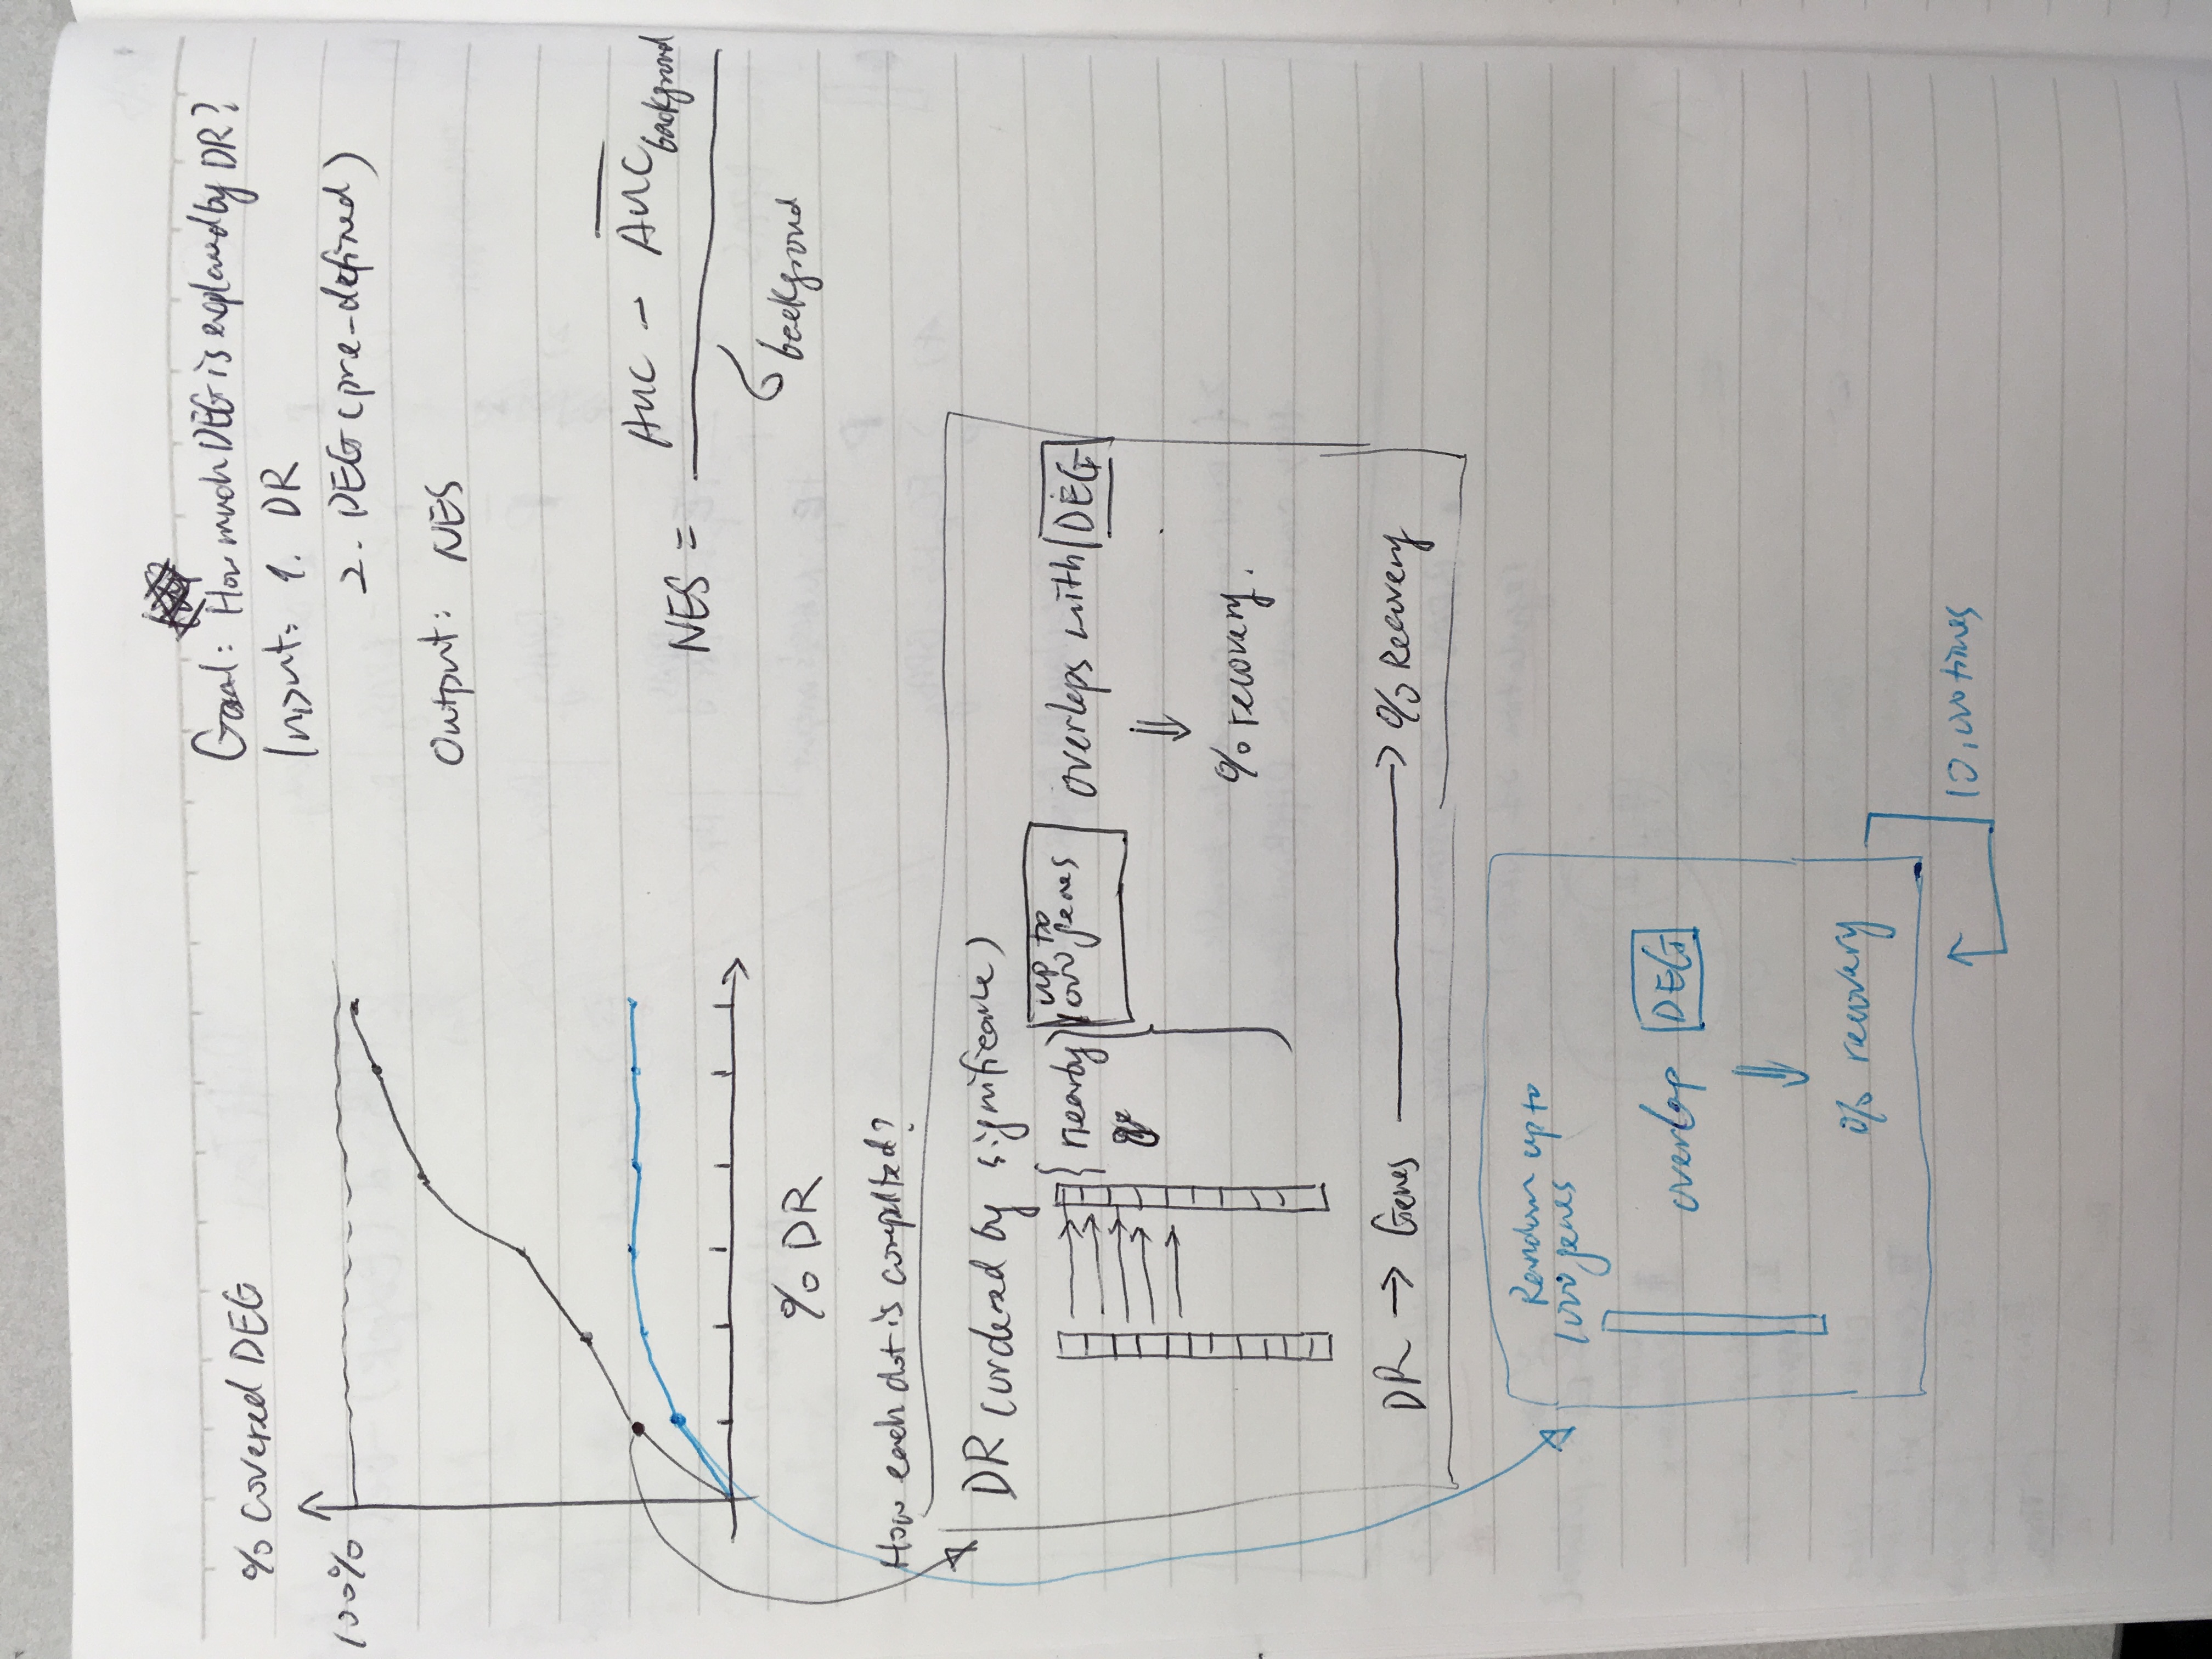 % covered DEG
100%
% DR
Goal: How much DEG is explained by DR?
Input: 1. DR
2. DEG (pre-defined)
Output: NES
NES = AUC - AUC backgroud
σ backgroud
How each dot is computed?
DR (ordered by significance)
nearby
up to
1000 genes
overlaps with DEG
% recovery.
DR → Genes → % Recovery
Random up to
1000 genes
overlap DEG
% recovery
10,000 times